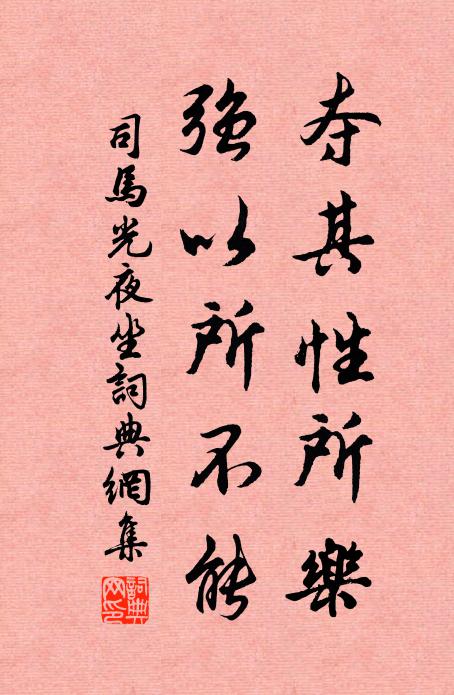 夺其性所樂
强以所不能
司馬光夜坐詞典網集
詞典网印